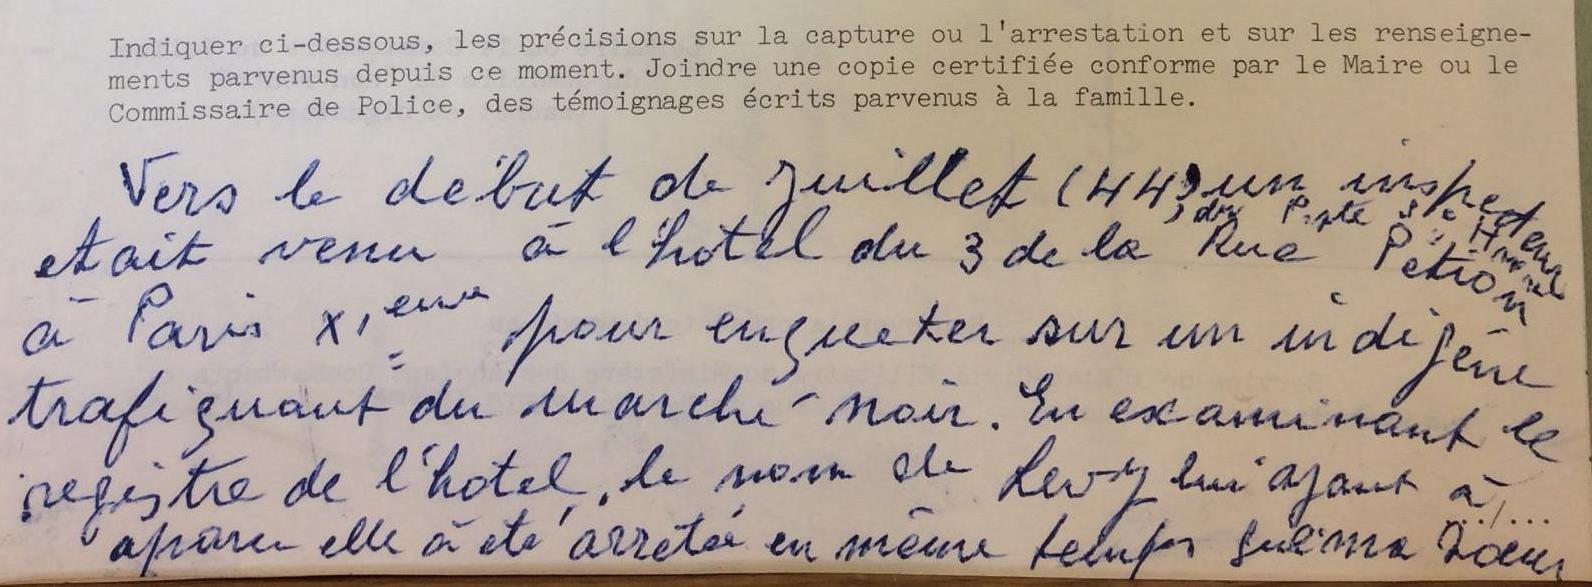 Indiquer ci-dessous, les précisions sur la capture ou l'arrestation et sur les renseigne-
ments parvenus depuis ce moment. Joindre une copie certifiée conforme par le Maire ou le
Commissaire de Police, des témoignages écrits parvenus à la famille.
Vers le début de juillet (44) un inspecteur
du Poste
etait venu à l'hotel du 3 de la Rue Pétion
à Paris XIeme pour enqueter sur un indigéne
trafiquant du marché noir. En examinant le
registre de l'hotel, le nom de Levy lui ayant à...
aparu elle à été arretée en même temps que ma soeur